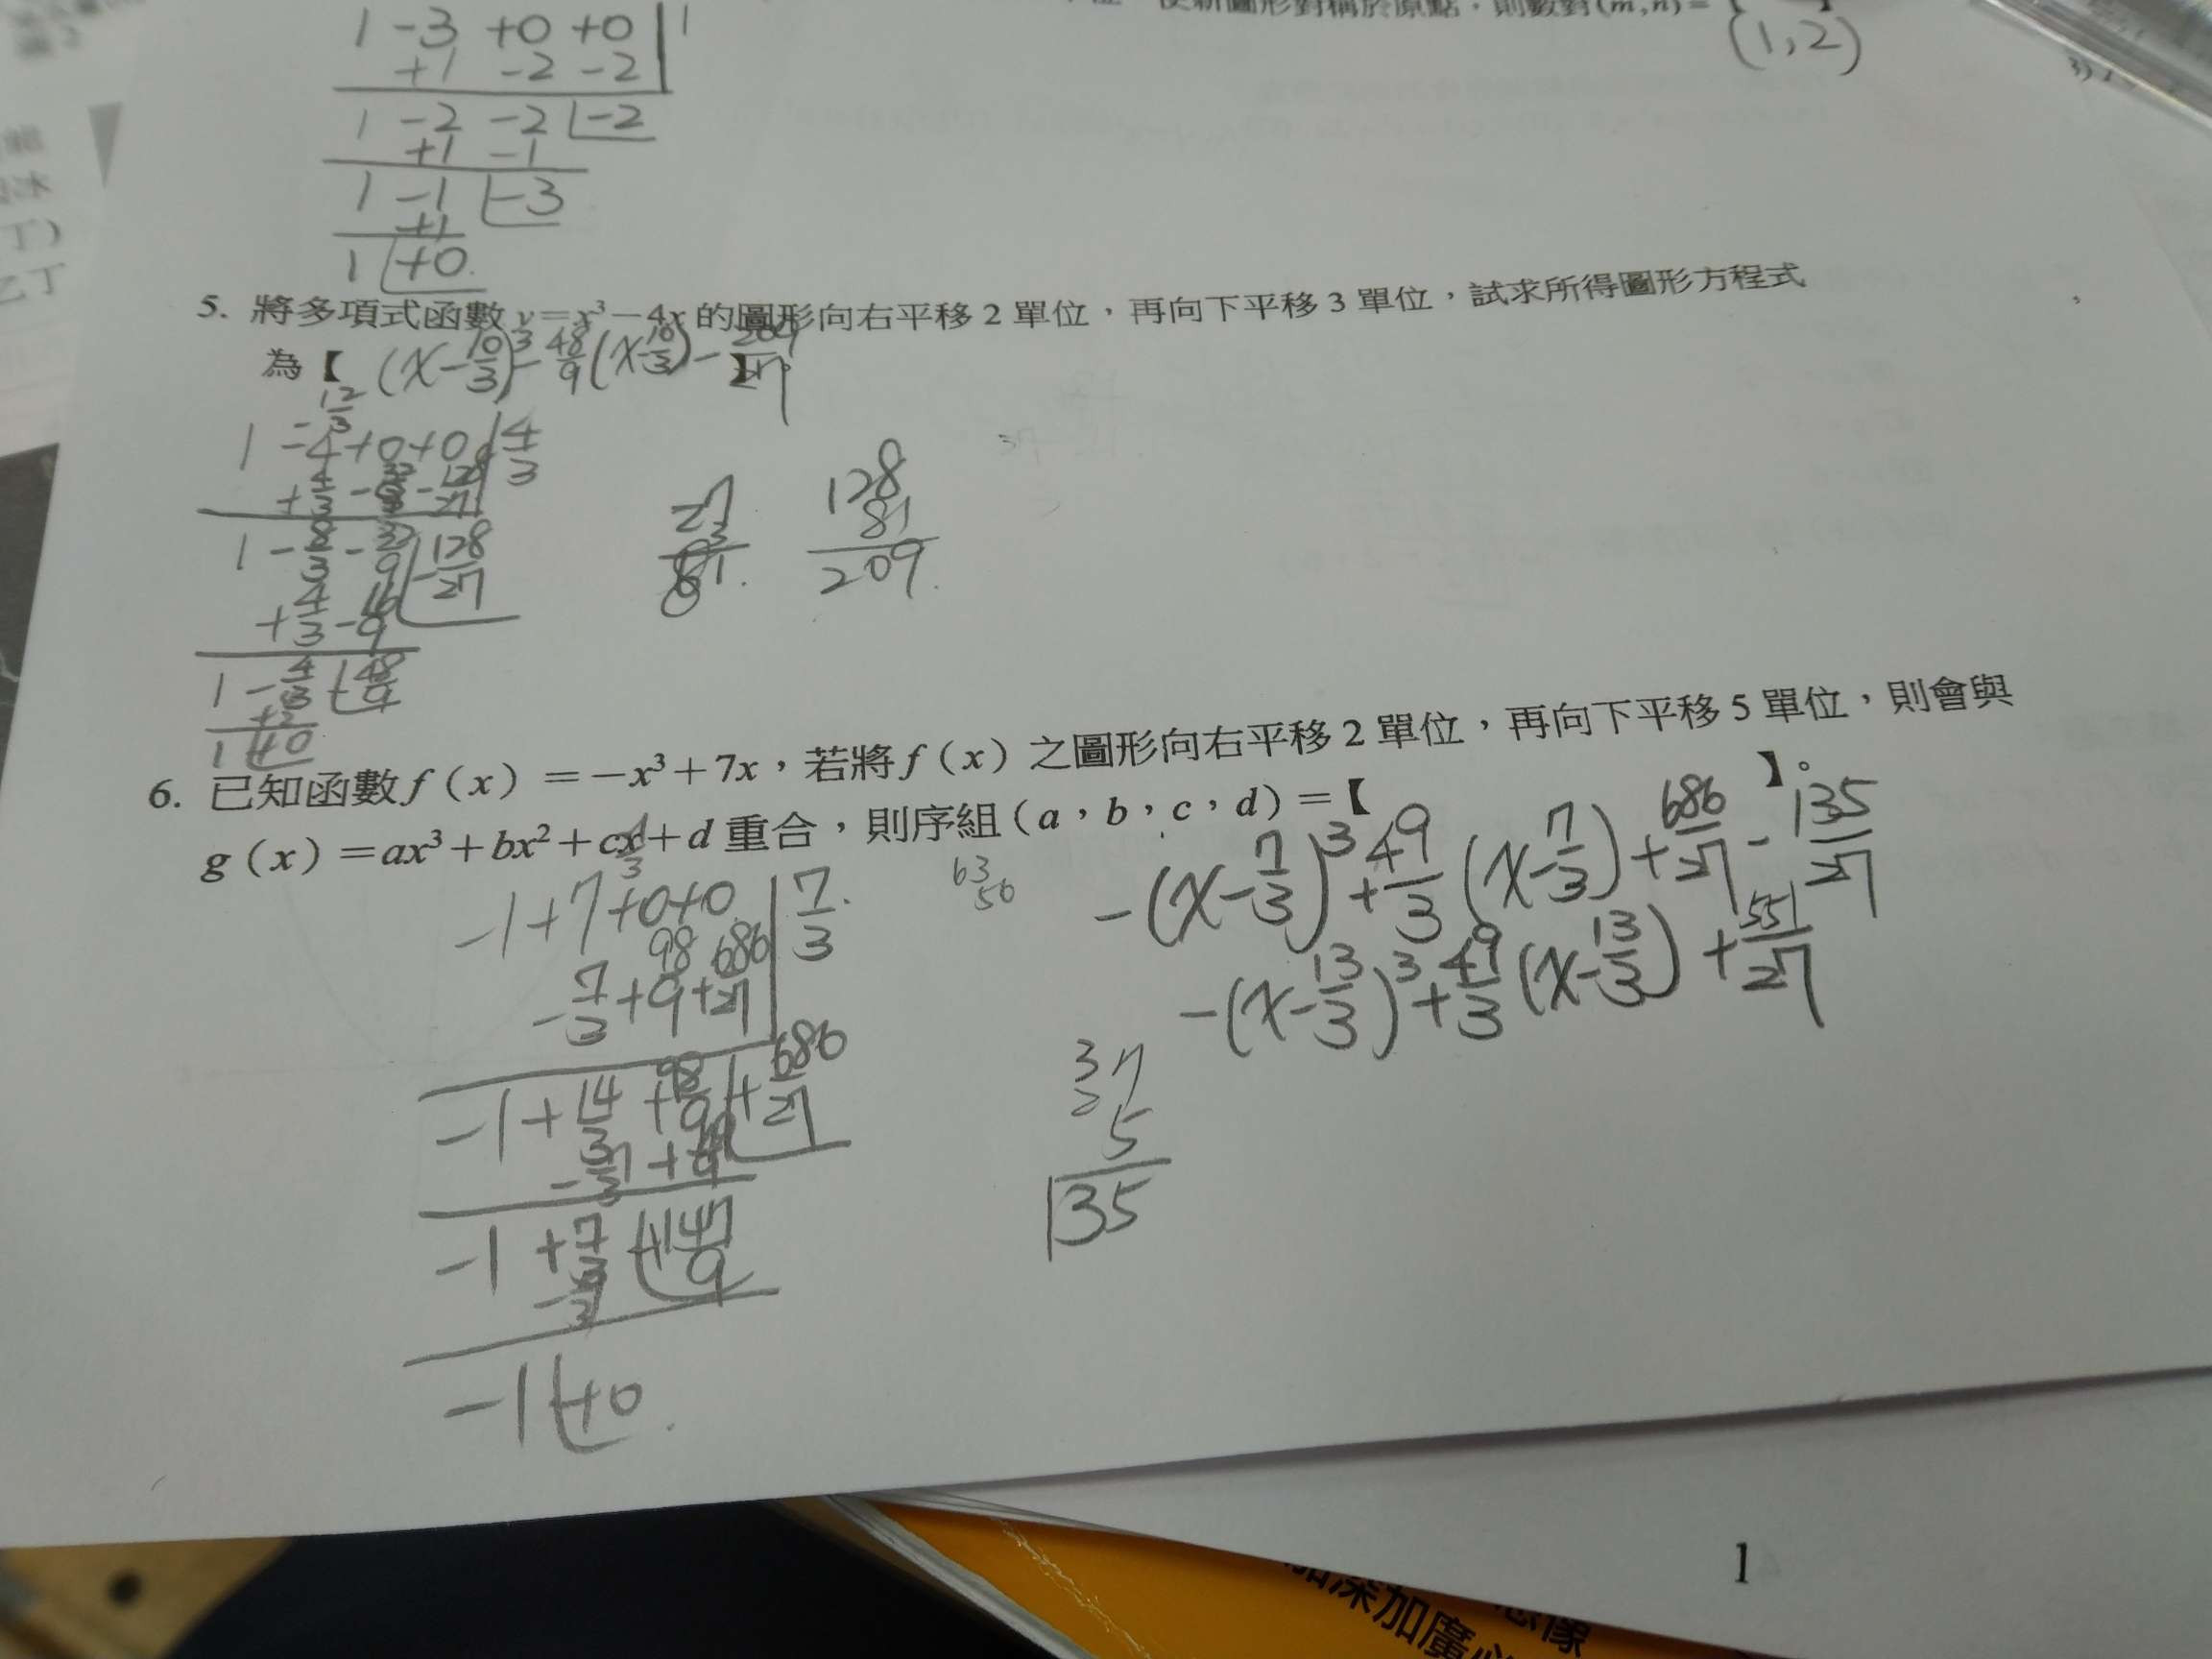 使新圖形對稱於原點，則數對(m,n)=
(1,2)
1 -3 +0 +0 | 1
+1 -2 -2
1 -2 -2 | -2
+1 -1
1 -1 | -3
+1
1 | +0
5. 將多項式函數 y=x³-4x 的圖形向右平移 2 單位，再向下平移 3 單位，試求所得圖形方程式
為【 (x-10/3)³-48/9(x-10/3)-209/27 】。
-12/3
1 -4 +0 +0 | 4/3
+4/3 -32/9 -128/27
1 -8/3 -32/9 | -128/27
+4/3 -16/9
1 -4/3 | -48/9
1 | +0
27
3
81.
128
81
209.
6. 已知函數 f（x）=-x³+7x，若將 f（x）之圖形向右平移 2 單位，再向下平移 5 單位，則會與
g（x）=ax³+bx²+cx+d 重合，則序組（a，b，c，d）=【 】。
-1 +7 +0 +0 | 7/3
-7/3 +98/9 +686/27
-1 +14/3 +98/9 | +686/27
-7/3 +49/9
-1 +7/3 | +147/9
-7/3
-1 | +0
63
56
-(x-7/3)³+49/3(x-7/3)+686/27-135/27
-(x-13/3)³+49/3(x-13/3)+551/27
3
27
5
135
1
加深加廣
想像